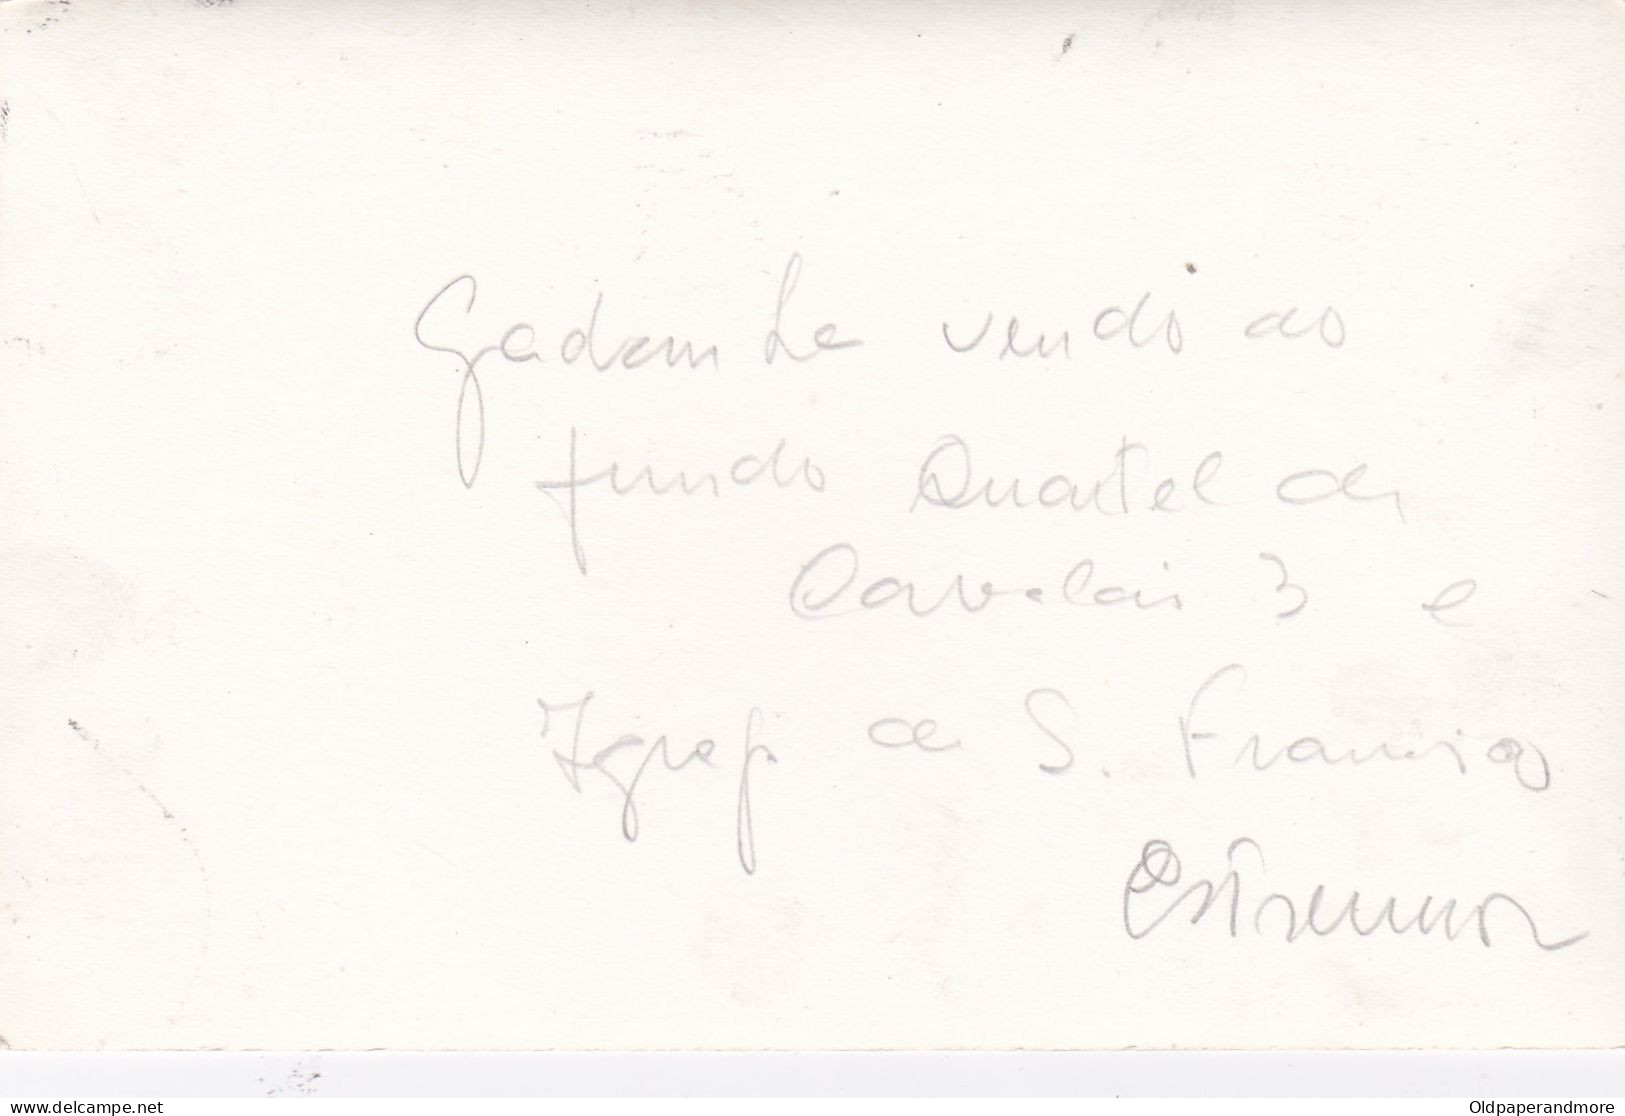 Gadanha vendo ao
fundo Quartel de
Cavalaria 3 e
Igreja de S. Francisco
Estremoz
www.delcampe.net
Oldpaperandmore